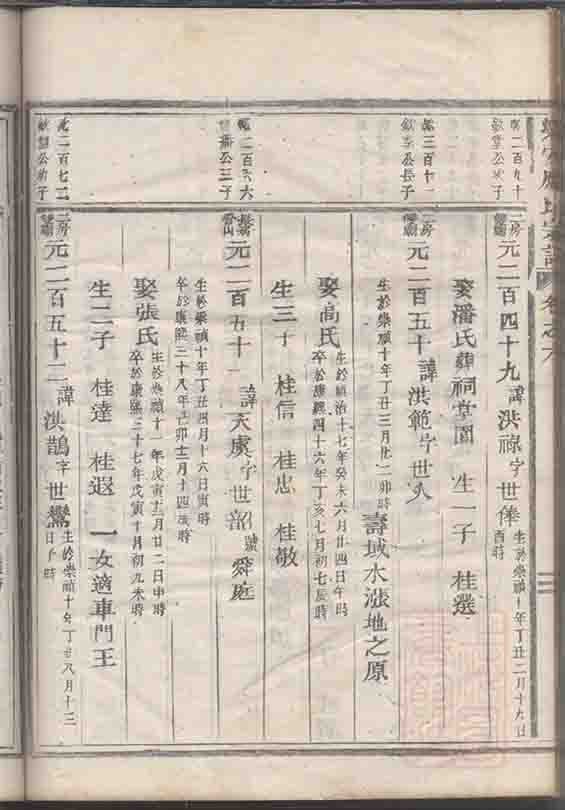 應氏宗譜 卷之六
二房 元二百四十九 諱洪祿 字世俸 生於崇禎十年丁丑二月十九日酉時
娶潘氏 葬祠堂園 生一子 桂選
二房 元二百五十 諱洪範 字世人
生於崇禎十年丁丑三月廿二卯時 壽域水漲地之原
娶高氏 生於順治十七年癸未六月廿四日午時
卒於康熙四十六年丁亥七月初七辰時
生三子 桂信 桂忠 桂敬
元二百五十一 諱大虞 字世韶 號舜庭
生於崇禎十年丁丑四月十六日寅時
卒於康熙三十八年己卯十二月十四戌時
娶張氏 生於崇禎十一年戊寅十二月廿二日申時
卒於康熙三十七年戊寅十月初九未時
生二子 桂達 桂遐 一女適車門王
二房 元二百五十二 諱洪鵲 字世鸞 生於崇禎十年丁丑八月十三日子時